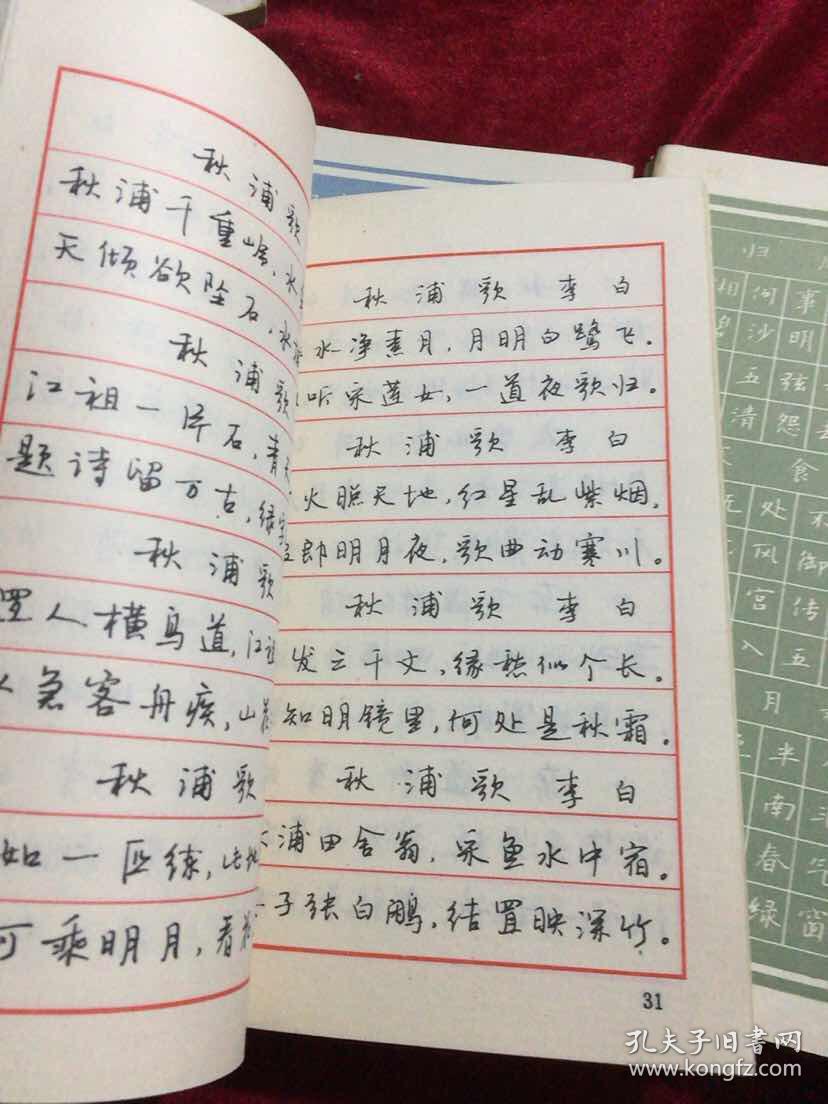 秋浦歌
秋浦千重岭，水
天倾欲坠石，水
秋浦歌
江祖一片石，青天
题诗留万古，绿字
秋浦歌
人横鸟道，江祖
急客舟疾，山
秋浦歌
如一匹练，此地
可乘明月，看
秋浦歌 李白
水净素月，月明白鹭飞。
听采菱女，一道夜歌归。
秋浦歌 李白
火照天地，红星乱紫烟，
郎明月夜，歌曲动寒川。
秋浦歌 李白
发三千丈，缘愁似个长。
知明镜里，何处是秋霜。
秋浦歌 李白
浦田舍翁，采鱼水中宿。
子张白鹏，结罝映深竹。
31
归
相何事
沙明
五弦
清怨
食
处不
风御
宫传
入五
月
半
南斗
春气
绿窗
孔夫子旧书网
www.kongfz.com